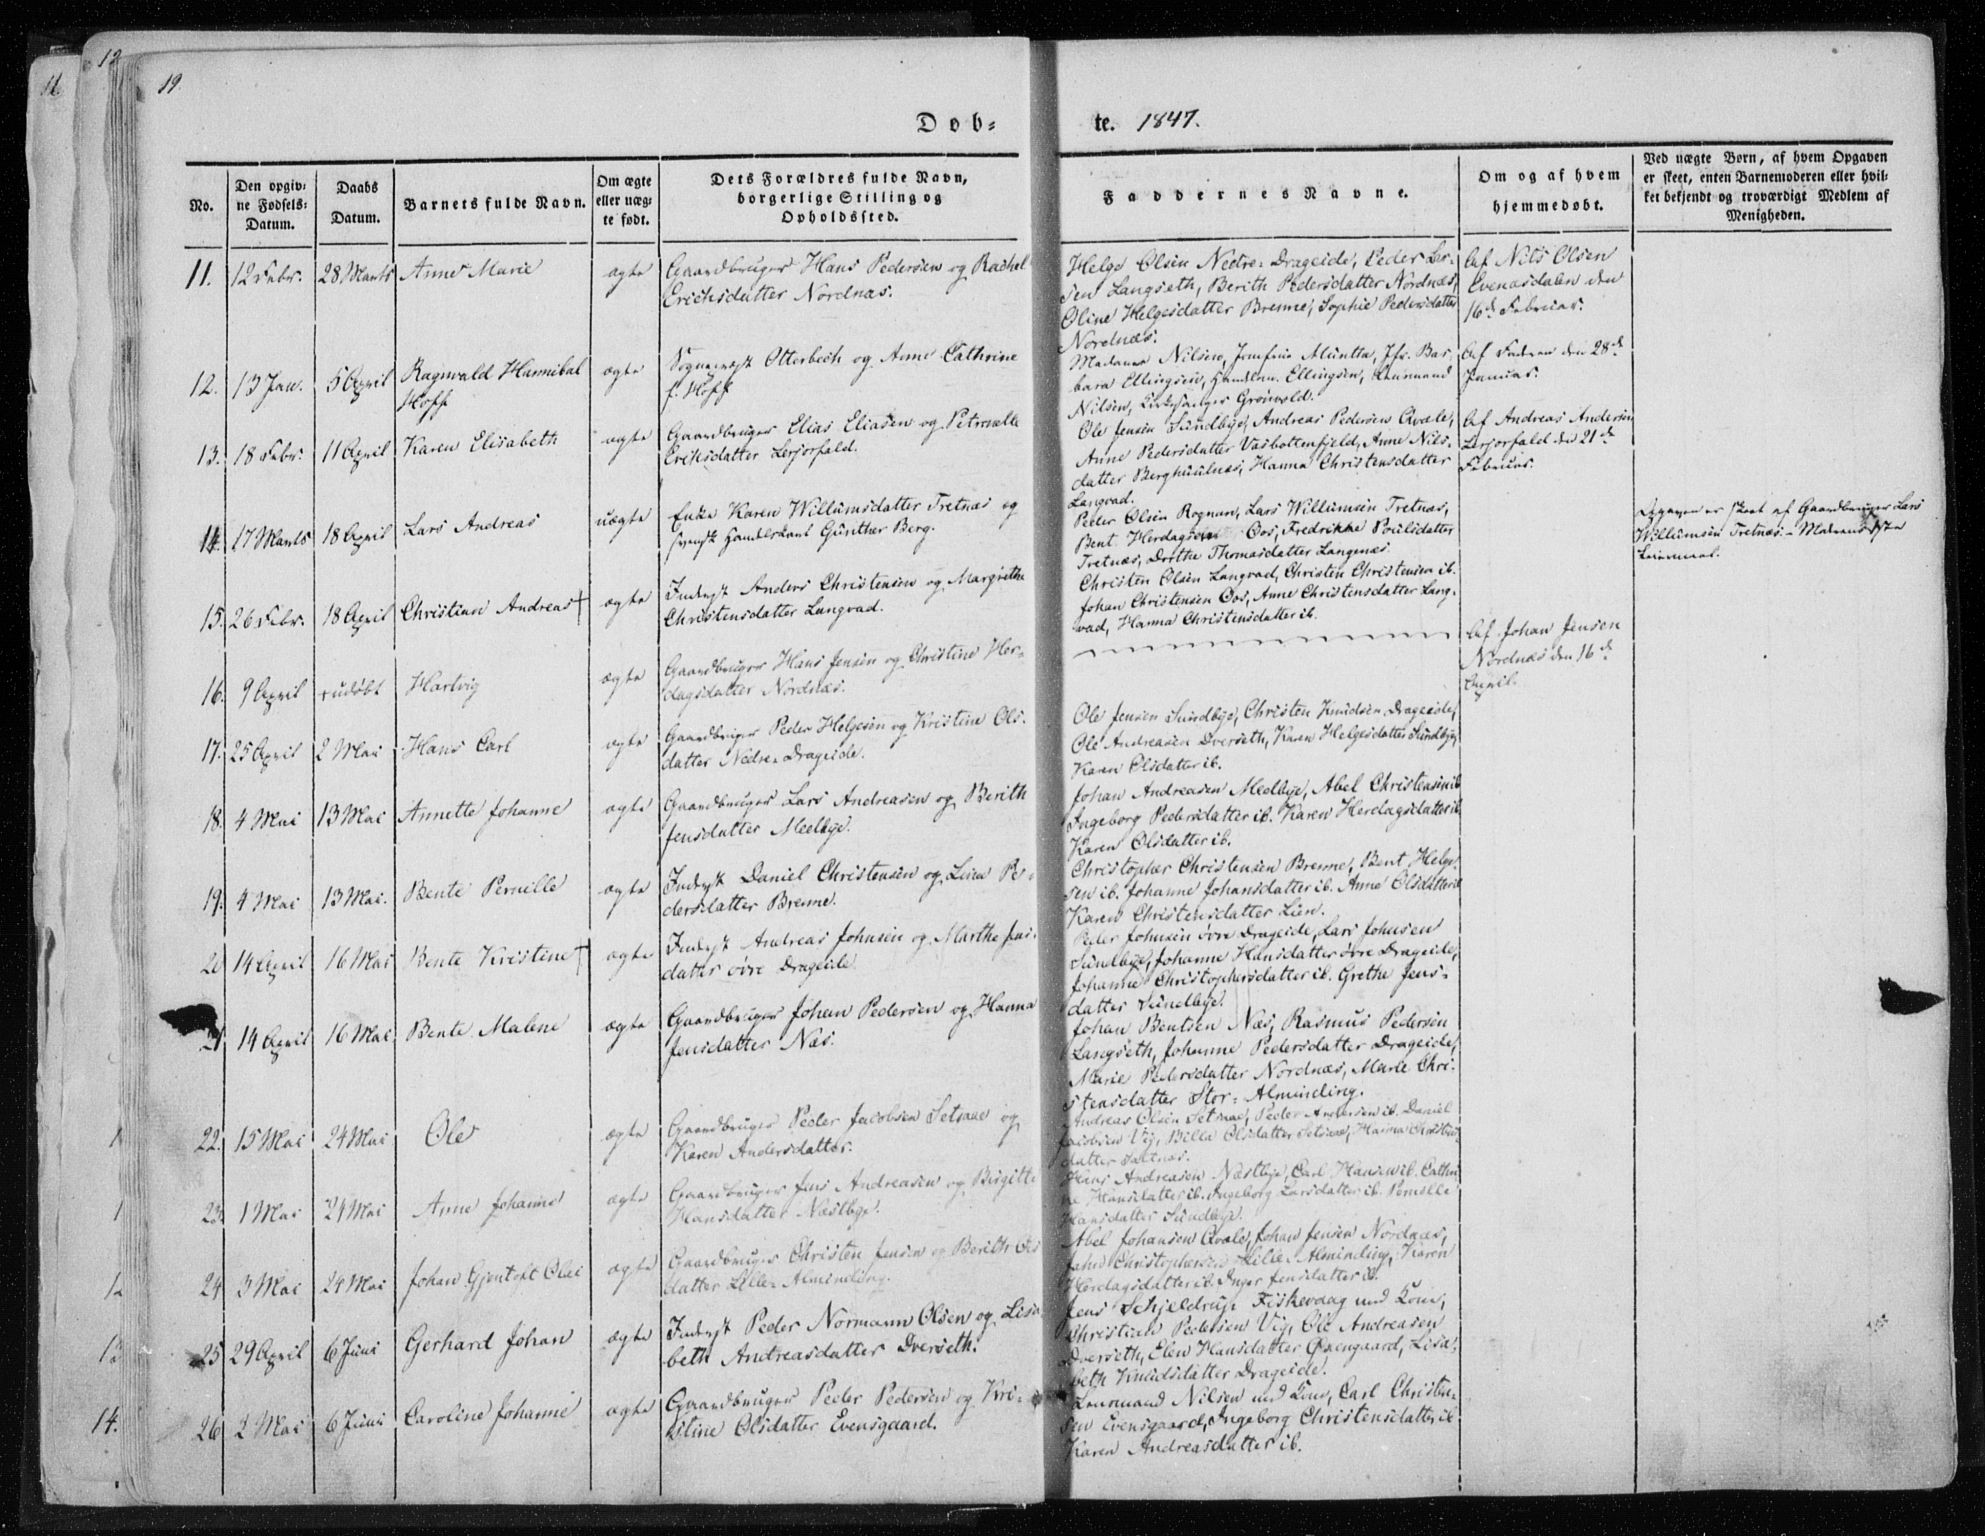 11.
12
19
Døb-
te. 1847.
No.
Den opgiv-
ne Fødsels-
Datum.
Daabs
Datum.
Barnets fulde Navn.
Om ægte
eller uæg-
te født.
Dets Forældres fulde Navn,
borgerlige Stilling og
Opholdssted.
Faddernes Navne.
Om og af hvem
hjemmedøbt.
Ved uægte Børn, af hvem Opgaven
er skeet, enten Barnemoderen eller hvil-
ket bekjendt og troværdigt Medlem af
Menigheden.
11. 12 Febr. 28 Marts Anne Marie ægte Gaardbruger Hans Pedersen og Rachel
Erichsdatter Nordnæs.
Helge Olsen Nedre-Drageide, Peder Lar-
sen Langseth, Berith Pedersdatter Nordnæs,
Oline Helgesdatter Brenne, Sophie Pedersdatter
Nordnæs.
Af Nils Olsen
Evenæsdalen den
16de Februar.
12. 13 Jan. 5 April Ragnvald Hannibal
Hoff
ægte Sogneprest Otterbech og Anne Cathrine
f. Hoff
Madame Nilsen, Jomfrue Muntta, Jfr. Bar-
bara Ellingsen, Handlsm. Ellingsen, Leunmand
Nilsen, Kirkesanger Grønvold.
Af Faderen den 28de
Januar.
13. 18 Febr. 11 April Karen Elisabeth ægte Gaardbruger Elias Eliasen og Petronelle
Eriksdatter Lersorfald.
Ole Jensen Sundbye, Andreas Pedersen Qvale,
Anne Pedersdatter Vasbottenfjeld, Anne Nils-
datter Berghuulnæs, Hanna Christensdatter
Langvad.
Af Andreas Andersen
Lersorfald den 21de
Februar.
14. 17 Marts 18 April Lars Andreas uægte Enke Karen Willumsdatter Tretnæs og
svensk Handelskarl Günther Berg.
Peder Olsen Rognan, Lars Willumsen Tretnæs,
Bent Herdagsen Oos, Fredrikka Poulsdatter
Tretnæs, Dorthe Thomasdatter Langenæs
Opgaven er skeet af Gaardbruger Lars
Willumsen Tretnæs. - Moderens 1ste
Leiermaal.
15. 26 Febr. 18 April Christian Andreas † ægte Inderst Anders Christensen og Margrethe
Christensdatter Langvad.
Christen Olsen Langvad, Christen Christensen ib.
Johan Christensen Oos, Anne Christensdatter Lang-
vad, Hanna Christensdatter ib.
16. 9 April udøbt Hartvig ægte Gaardbruger Hans Jensen og Christine Her-
dagsdatter Nordnæs.
Af Johan Jensen
Nordnæs den 16de
April.
17. 25 April 2 Mai Hans Carl ægte Gaardbruger Peder Helgesen og Kristine Ols-
datter Nedre-Drageide.
Ole Jensen Sundbye, Christen Knudsen Drageide,
Ole Andreasen Dverseth, Karen Helgesdatter Sundbye,
Karen Olsdatter ib.
18. 4 Mai 13 Mai Annette Johanne ægte Gaardbruger Lars Andreasen og Berith
Jensdatter Meelbye.
Johan Andreasen Meelbye, Abel Christensen ib
Ingeborg Pedersdatter ib. Karen Herdagsdatter ib.
Karen Olsdatter ib.
19. 4 Mai 13 Mai. Bente Pernille ægte Inderst Daniel Christensen og Lina Pe-
dersdatter Brenne.
Christopher Christensen Brenne, Bent Helge-
sen ib. Johanne Johansdatter ib. Anne Olsdatter ib
Karen Christensdatter Lien.
20 14 April 16 Mai Bente Kristine † ægte Inderst Andreas Johnsen og Marthe Jens-
datter øvre Drageide.
Peder Johnsen øvre Drageide, Lars Johnsen
Sundbye, Johanne Hansdatter øvre Drageide,
Johanne Christophersdatter ib. Grethe Jens-
datter Sundbye.
21 14 April 16 Mai Bente Malene ægte Gaardbruger Johan Pedersen og Hanna
Jensdatter Næs.
Johan Bentsen Næs, Rasmus Pedersen
Langseth, Johanne Pedersdatter Drageide,
Marie Pedersdatter Nordnæs, Marie Chri-
stensdatter Stor-Alminding.
22. 15 Mai 24 Mai Ole ægte Gaardbruger Peder Jacobsen Setsaae og
Karen Andersdatter.
Andreas Olsen Setsaae, Peder Andersen ib. Daniel
Jacobsen Vig, Billa Olsdatter Setsaae, Hanna Christens-
datter Saltnæs.
23. 1 Mai 24 Mai Anne Johanne ægte Gaardbruger Jens Andreasen og Birgitte
Hansdatter Næstbye.
Hans Andreasen Næstbye, Carl Hansen ib. Cathri-
ne Hansdatter ib. Ingeborg Larsdatter ib. Pernelle
Hansdatter Sundbye.
24 3 Mai 24 Mai Johan Gjentoft Olai ægte Gaardbruger Christen Jensen og Berith Ols-
datter Lille-Alminding.
Abel Johansen Qvale, Johan Jensen Nordnæs,
John Christophersen Lille-Alminding, Karen
Herdagsdatter ib. Inger Jensdatter ib.
25 29 April 6 Juni Gerhard Johan ægte Inderst Peder Normann Olsen og Lisa-
beth Andreasdatter Dverseth.
Jens Schjeldrup Fiskevaag med Kone,
Christian Pedersen Vig, Ole Andreasen
Dverseth, Elen Hansdatter Øxengaard, Lisa-
beth Knudsdatter Drageide.
26 2 Mai 6 Juni Caroline Johanne ægte Gaardbruger Peder Pedersen og Kri-
stine Olsdatter Evensgaard.
Leunmand Nilsen med Kone, Carl Christen-
sen Evensgaard, Ingeborg Christensdatter ib
Karen Andreasdatter ib.
14.